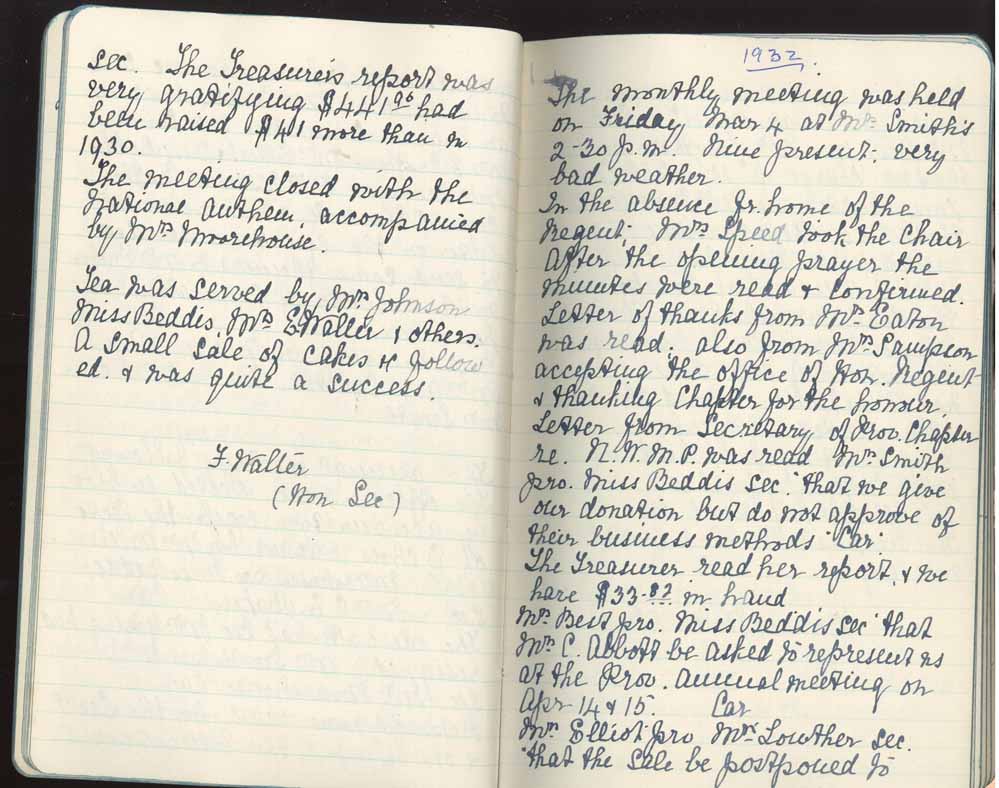 sec. The Treasurer's report was
very gratifying $441 had
been raised $41 more than in
1930.
The meeting closed with the
National Anthem accompanied
by Mrs Moorehouse.
Tea was served by Mrs Johnson
Miss Beddis, Mrs E Walter & others.
A small sale of cakes follow
ed. & was quite a success.
F. Walter
(Hon Sec)
1932.
The monthly meeting was held
on Friday Mar 4 at Mrs Smith's
2-30 p.m. Nine present, very
bad weather.
In the absence fr. home of the
Regent, Mrs Speed took the Chair
After the opening prayer the
minutes were read & confirmed.
Letter of thanks from Mrs Eaton
was read, also from Mrs Sampson
accepting the office of Hon. Regent
& thanking Chapter for the honour.
Letter from Secretary of Prov. Chapter
re. N.W.M.P. was read Mrs Smith
pro. Miss Beddis sec. that we give
our donation but do not approve of
their business methods Car.
The Treasurer read her report, & we
have $33.82 in hand
Mrs Best pro. Miss Beddis sec that
Mrs C. Abbott be asked to represent us
at the Prov. annual meeting on
Apr 14 & 15. Car
Mrs Elliot pro Mrs Lowther sec.
that the Sale be postponed to